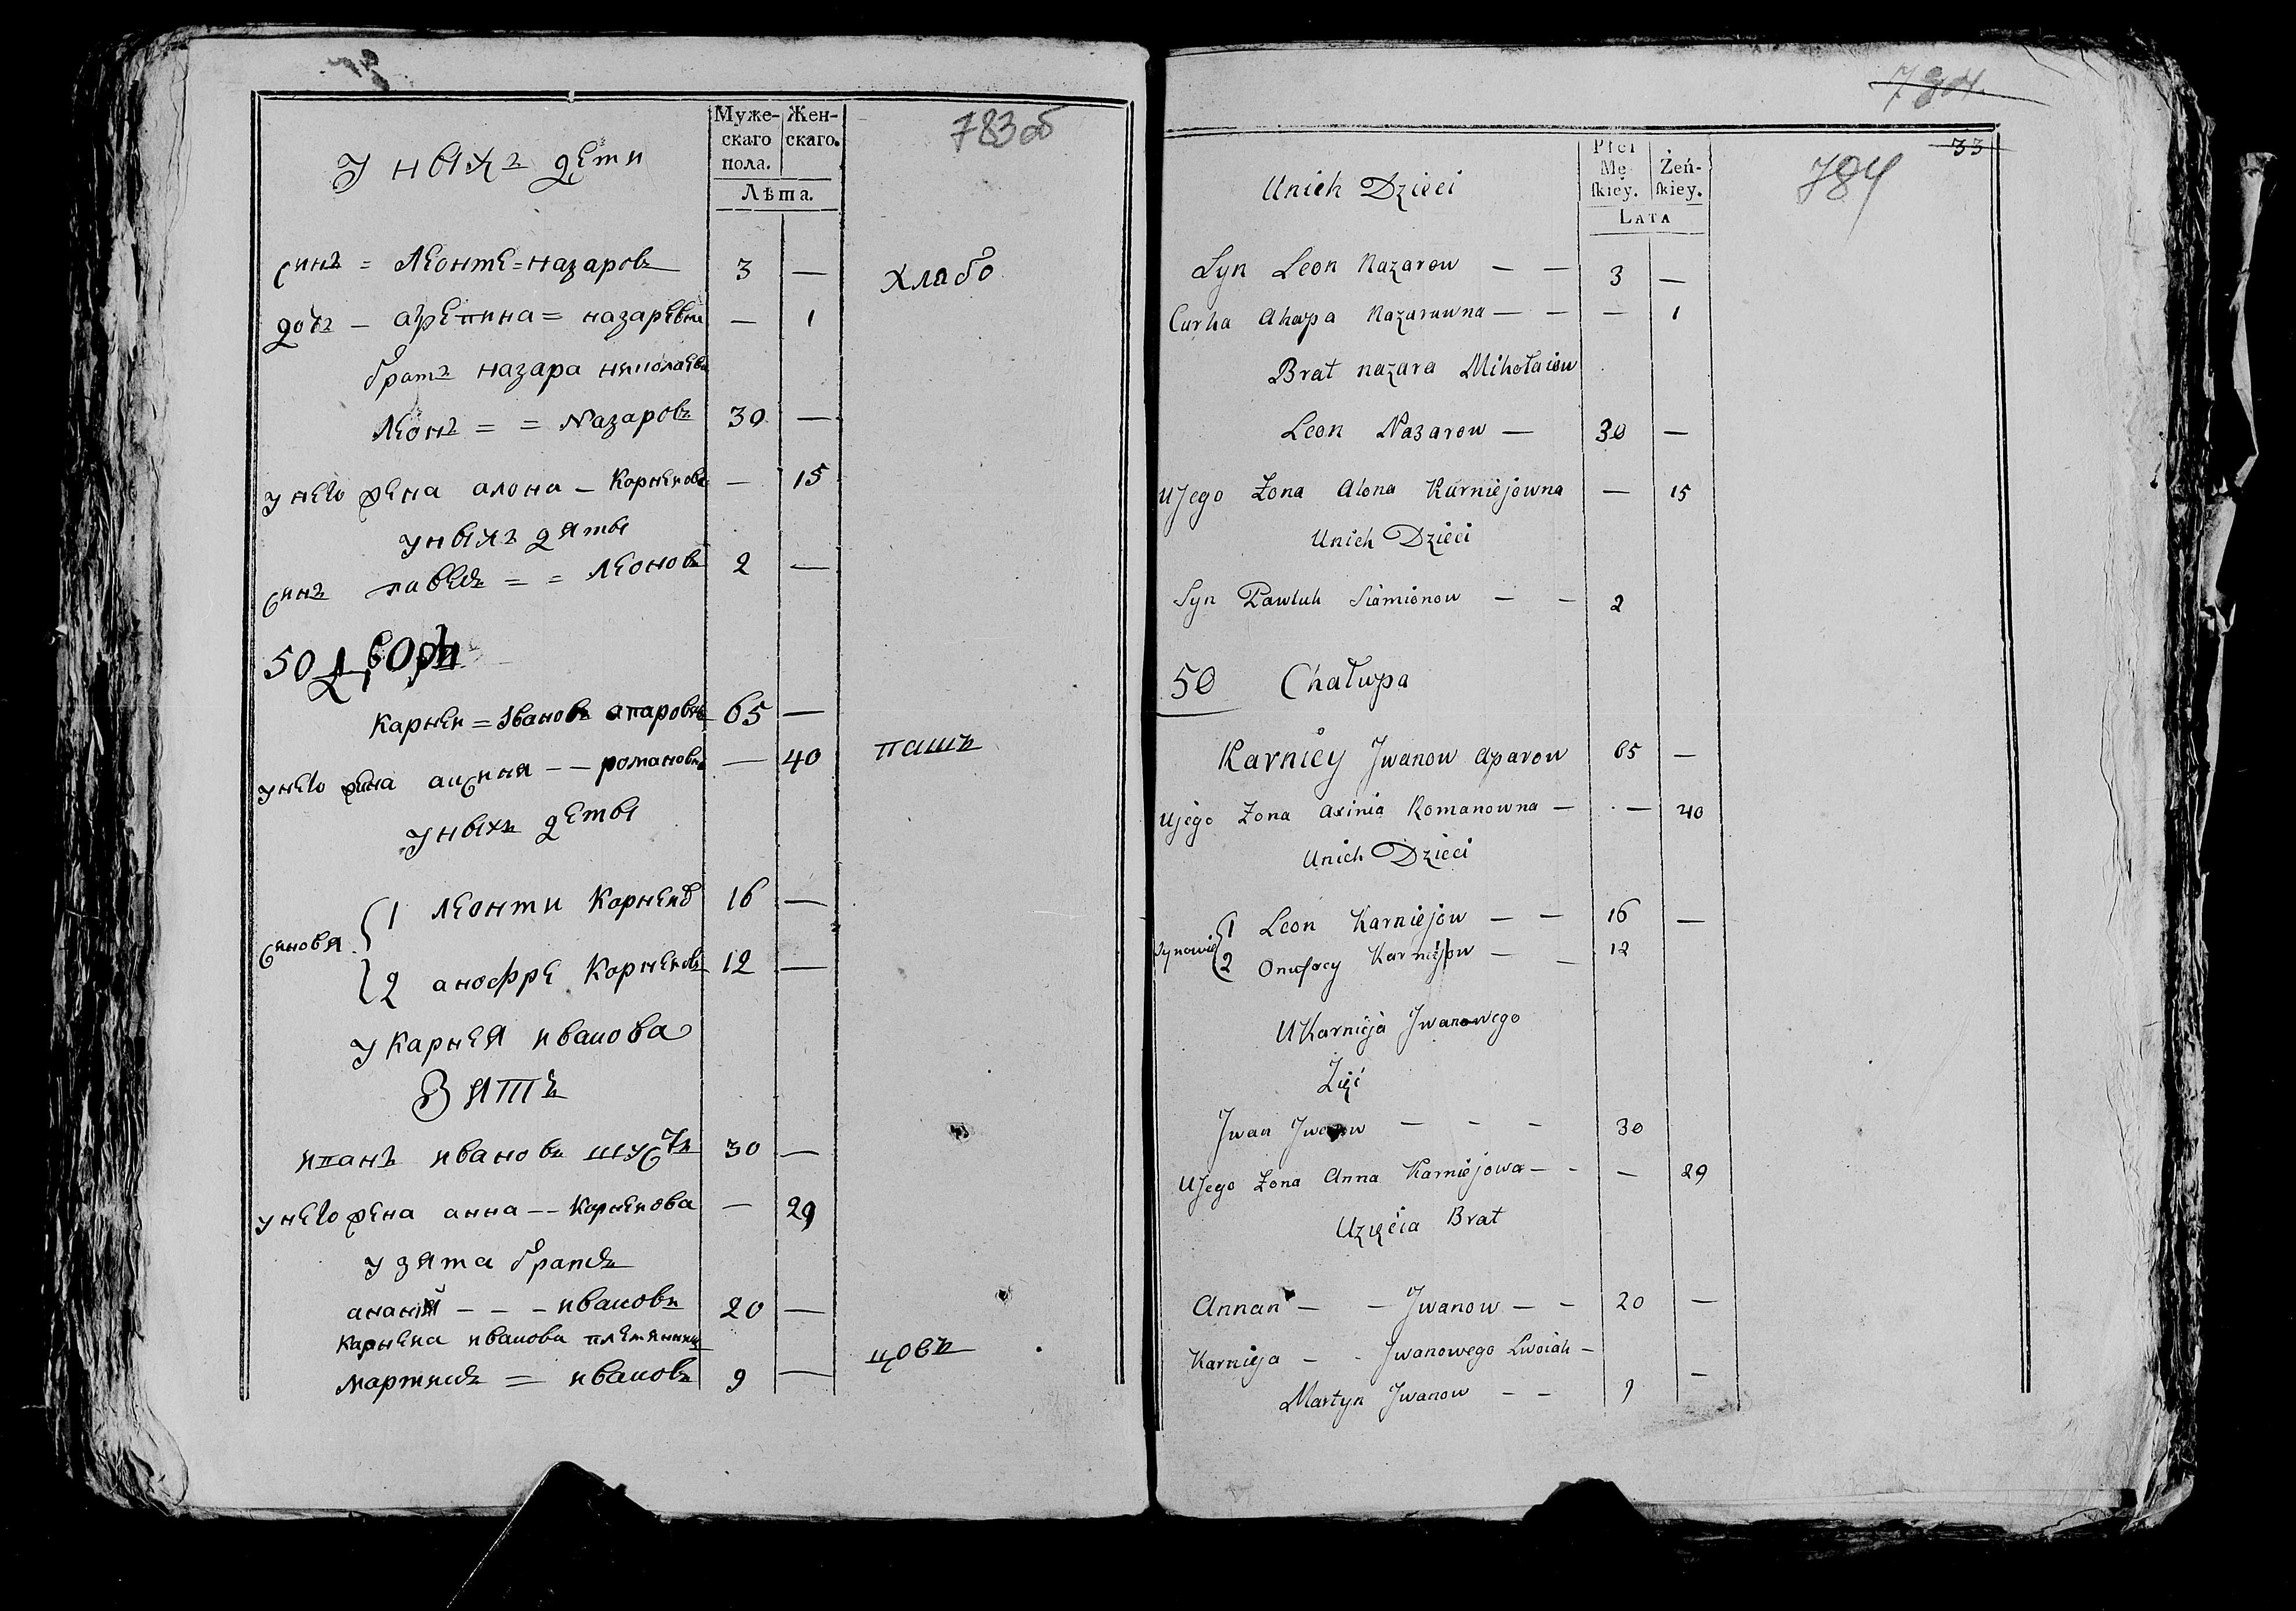 783об
Муже- Жен-
скаго скаго.
пола.
Лѣта.
У ныхъ дети
синъ = Леонте = назаровъ 3 —
хлабо
дочъ — агрепина = назаревна — 1
братъ назара николаева
Леонъ = = Nазаровъ 30 —
у него жена алона — Корнеиова — 15
у ныхъ дяты
синъ павелъ = = Леоновъ 2 —
50 дворъ
Карнеи = Iвановъ апаровъ 65 —
пашъ
у него жена аксиня — — романовна — 40
у ныхъ деты
синовя
1 леонти Корнеиов 16 —
2 анофре Корнеиовъ 12 —
У Карнея иванова
Зять
иванъ ивановъ шусть 30 —
у него жена анна — — Корнеиова — 29
у зята братъ
ананий — — — ивановъ 20 —
Карнеиа иванова племянник
цовъ
мартинъ = ивановъ 9 —
784
33
Płci
Mę- Żeń-
ſkiey. ſkiey.
LATA
784
Unich Dzieci
Syn Leon Nazarow — — 3 —
Curka Ahapa Nazarowna — — — 1
Brat nazara Mikołaiow
Leon Nazarow — 30 —
UJego Żona Alona Karniejowna — 15
Unich Dzieci
Syn Pawluk Siamionow — — 2
50 Chałupa
Karniey Jwanow Aparow 65 —
Ujego Żona Axinia Romanowna — — 40
Unich Dzieci
Synowie
1 Leon Karniejow — — 16 —
2 Onufrey Karniejow — — 12
UKarnieja Jwanowego
Zięć
Jwan Jwanow — — — 30
UJego Żona Anna Karniejowa — - — 29
Uzięcia Brat
Annan — — Jwanow — — 20 —
Karnieja — - Jwanowego Swoiak —
Martyn Jwanow — — 9 —